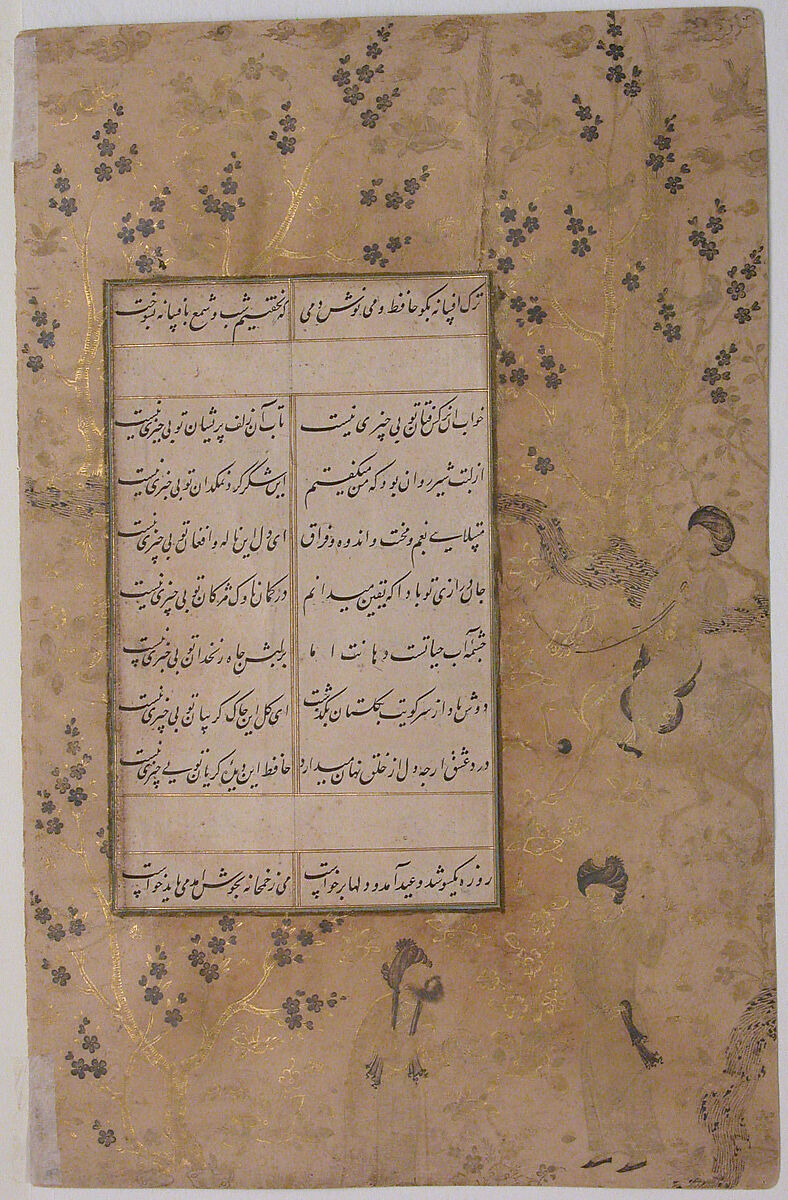 ترک افسانه بگو حافظ و می نوش دمی که نخفتیم شب و شمع بافسانه بسوخت
خواب آن نرگس فتان تو بی چیزی نیست تاب آن زلف پریشان تو بی چیزی نیست
از لبت شیر روان بود که من میگفتم این شکر گرد نمکدان تو بی چیزی نیست
مبتلایی بغم و محنت و اندوه و فراق ای دل این ناله و افغان تو بی چیزی نیست
جان درازی تو بادا که یقین میدانم در کمان ناوک مژگان تو بی چیزی نیست
چشمه آب حیاتست دهانت اما بر لبش چاه زنخدان تو بی چیزی نیست
دوش باد از سر کویت بگلستان بگذشت ای گل این چاک گریبان تو بی چیزی نیست
درد عشق ارچه دل از خلق نهان میدارد حافظ این دیده گریان تو بی چیزی نیست
روزه یکسو شد و عید آمد و دلها برخاست می زخمخانه بجوش آمد می باید خواست